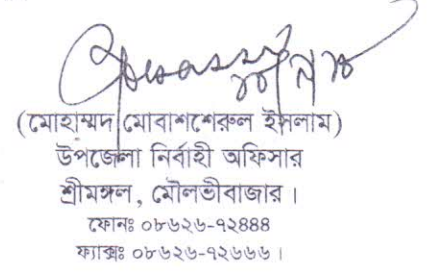 (মোহাম্মদ মোবাশশেরুল ইসলাম)
উপজেলা নির্বাহী অফিসার
শ্রীমঙ্গল, মৌলভীবাজার।
ফোনঃ ০৮৬২৬-৭২৪৪৪
ফ্যাক্সঃ ০৮৬২৬-৭২৬৬৬।